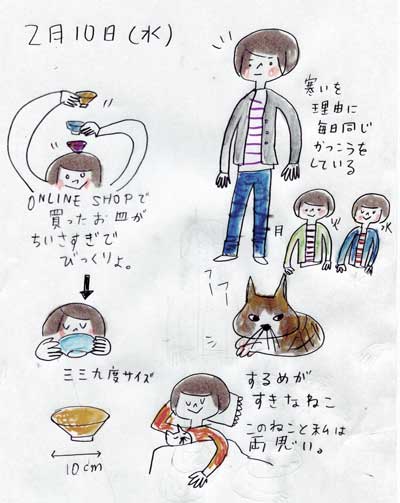 2月10日(水)
ONLINE SHOPで
買ったお皿が
ちいさすぎで
びっくりよ。
三三九度サイズ
10cm
寒いを
理由に
毎日同じ
かっこうを
している
月
火
水
フーフー
するめが
すきなねこ
このねこと私は
両思い。